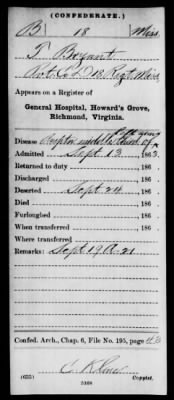 (CONFEDERATE.)
B 18 Miss.
T Bryant
Pvt. Co. D, 18 Regt. Miss.
Appears on a Register
of
General Hospital, Howard's Grove,
Richmond, Virginia.
Disease
Admitted Sept 13, 1863.
Returned to duty , 186 .
Discharged , 186 .
Deserted Sept 24, 186 .
Died , 186 .
Furloughed , 186 .
When transferred , 186 .
Where transferred
Remarks: Sept 19
Confed. Arch., Chap. 6, File No. 195, page
(635) Copyist.